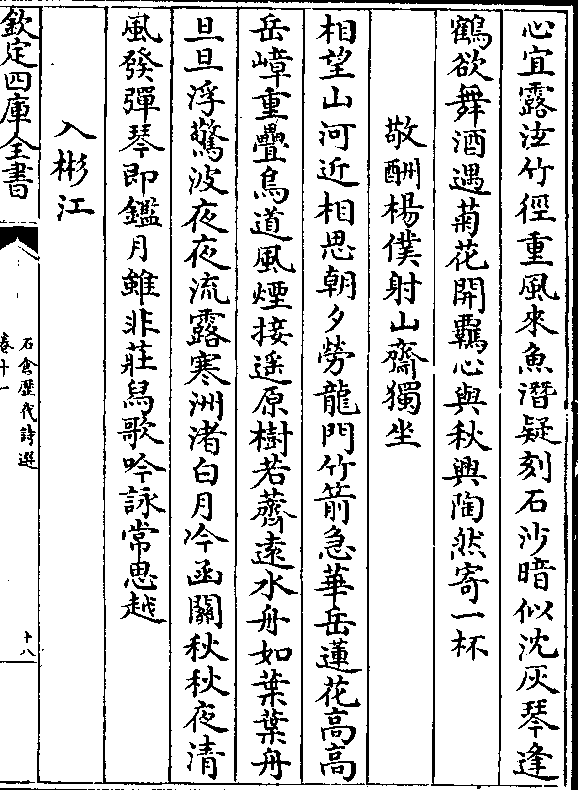 心宜露泫竹徑重風來魚潛疑刻石沙暗似沈灰琴逢
鶴欲舞酒遇菊花開羈心與秋興陶然寄一杯
敬酬楊僕射山齋獨坐
相望山河近相思朝夕勞龍門竹箭急華岳蓮花高高
岳嶂重疊鳥道風煙接遥原樹若薺遠水舟如葉葉舟
旦旦浮驚波夜夜流露寒洲渚白月吟函關秋秋夜清
風發彈琴即鑑月雖非莊舄歌吟詠常思越
入彬江
欽定四庫全書
石倉歷代詩選
卷十一
十八